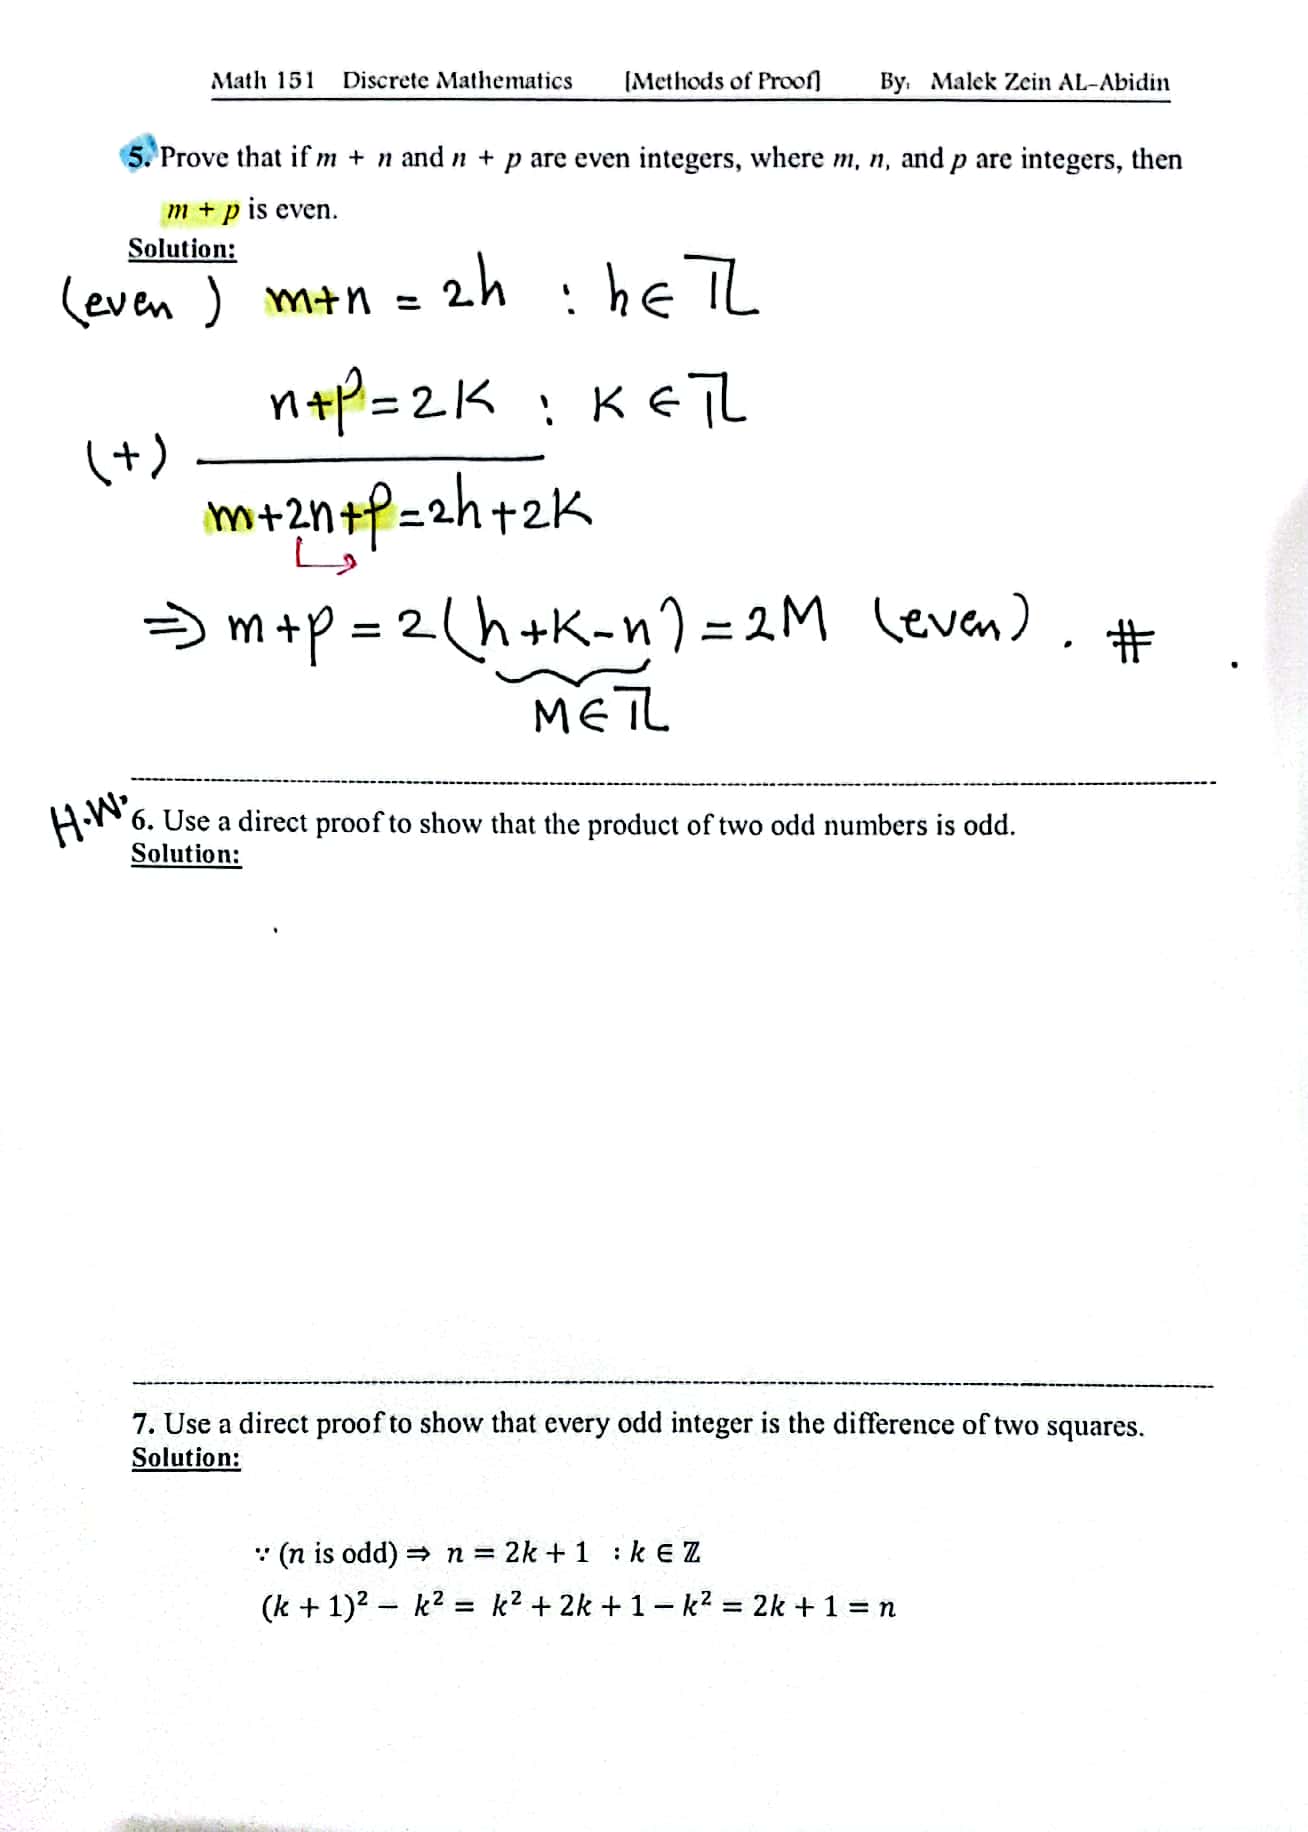 Math 151 Discrete Mathematics [Methods of Proof] By: Malek Zein AL-Abidin
5. Prove that if m + n and n + p are even integers, where m, n, and p are integers, then
m + p is even.
Solution:
(even) m+n = 2h : h∈ℤ
n+p=2K : K∈ℤ
(+)
m+2n+p=2h+2K
⇒ m+p = 2(h+K-n) = 2M (even). #
M∈ℤ
H.W. 6. Use a direct proof to show that the product of two odd numbers is odd.
Solution:
7. Use a direct proof to show that every odd integer is the difference of two squares.
Solution:
∵ (n is odd) ⇒ n = 2k + 1 : k ∈ ℤ
(k + 1)² − k² = k² + 2k + 1 − k² = 2k + 1 = n